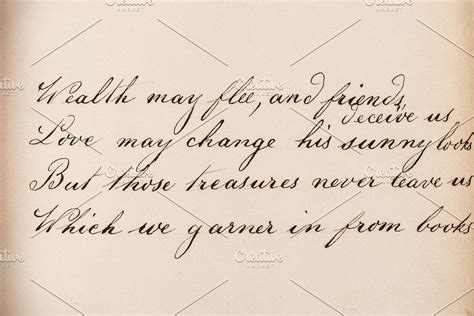 Wealth may flee, and friends,
deceive us
Love may change his sunny looks
But those treasures never leave us
Which we garner in from books
Creative
MARKET